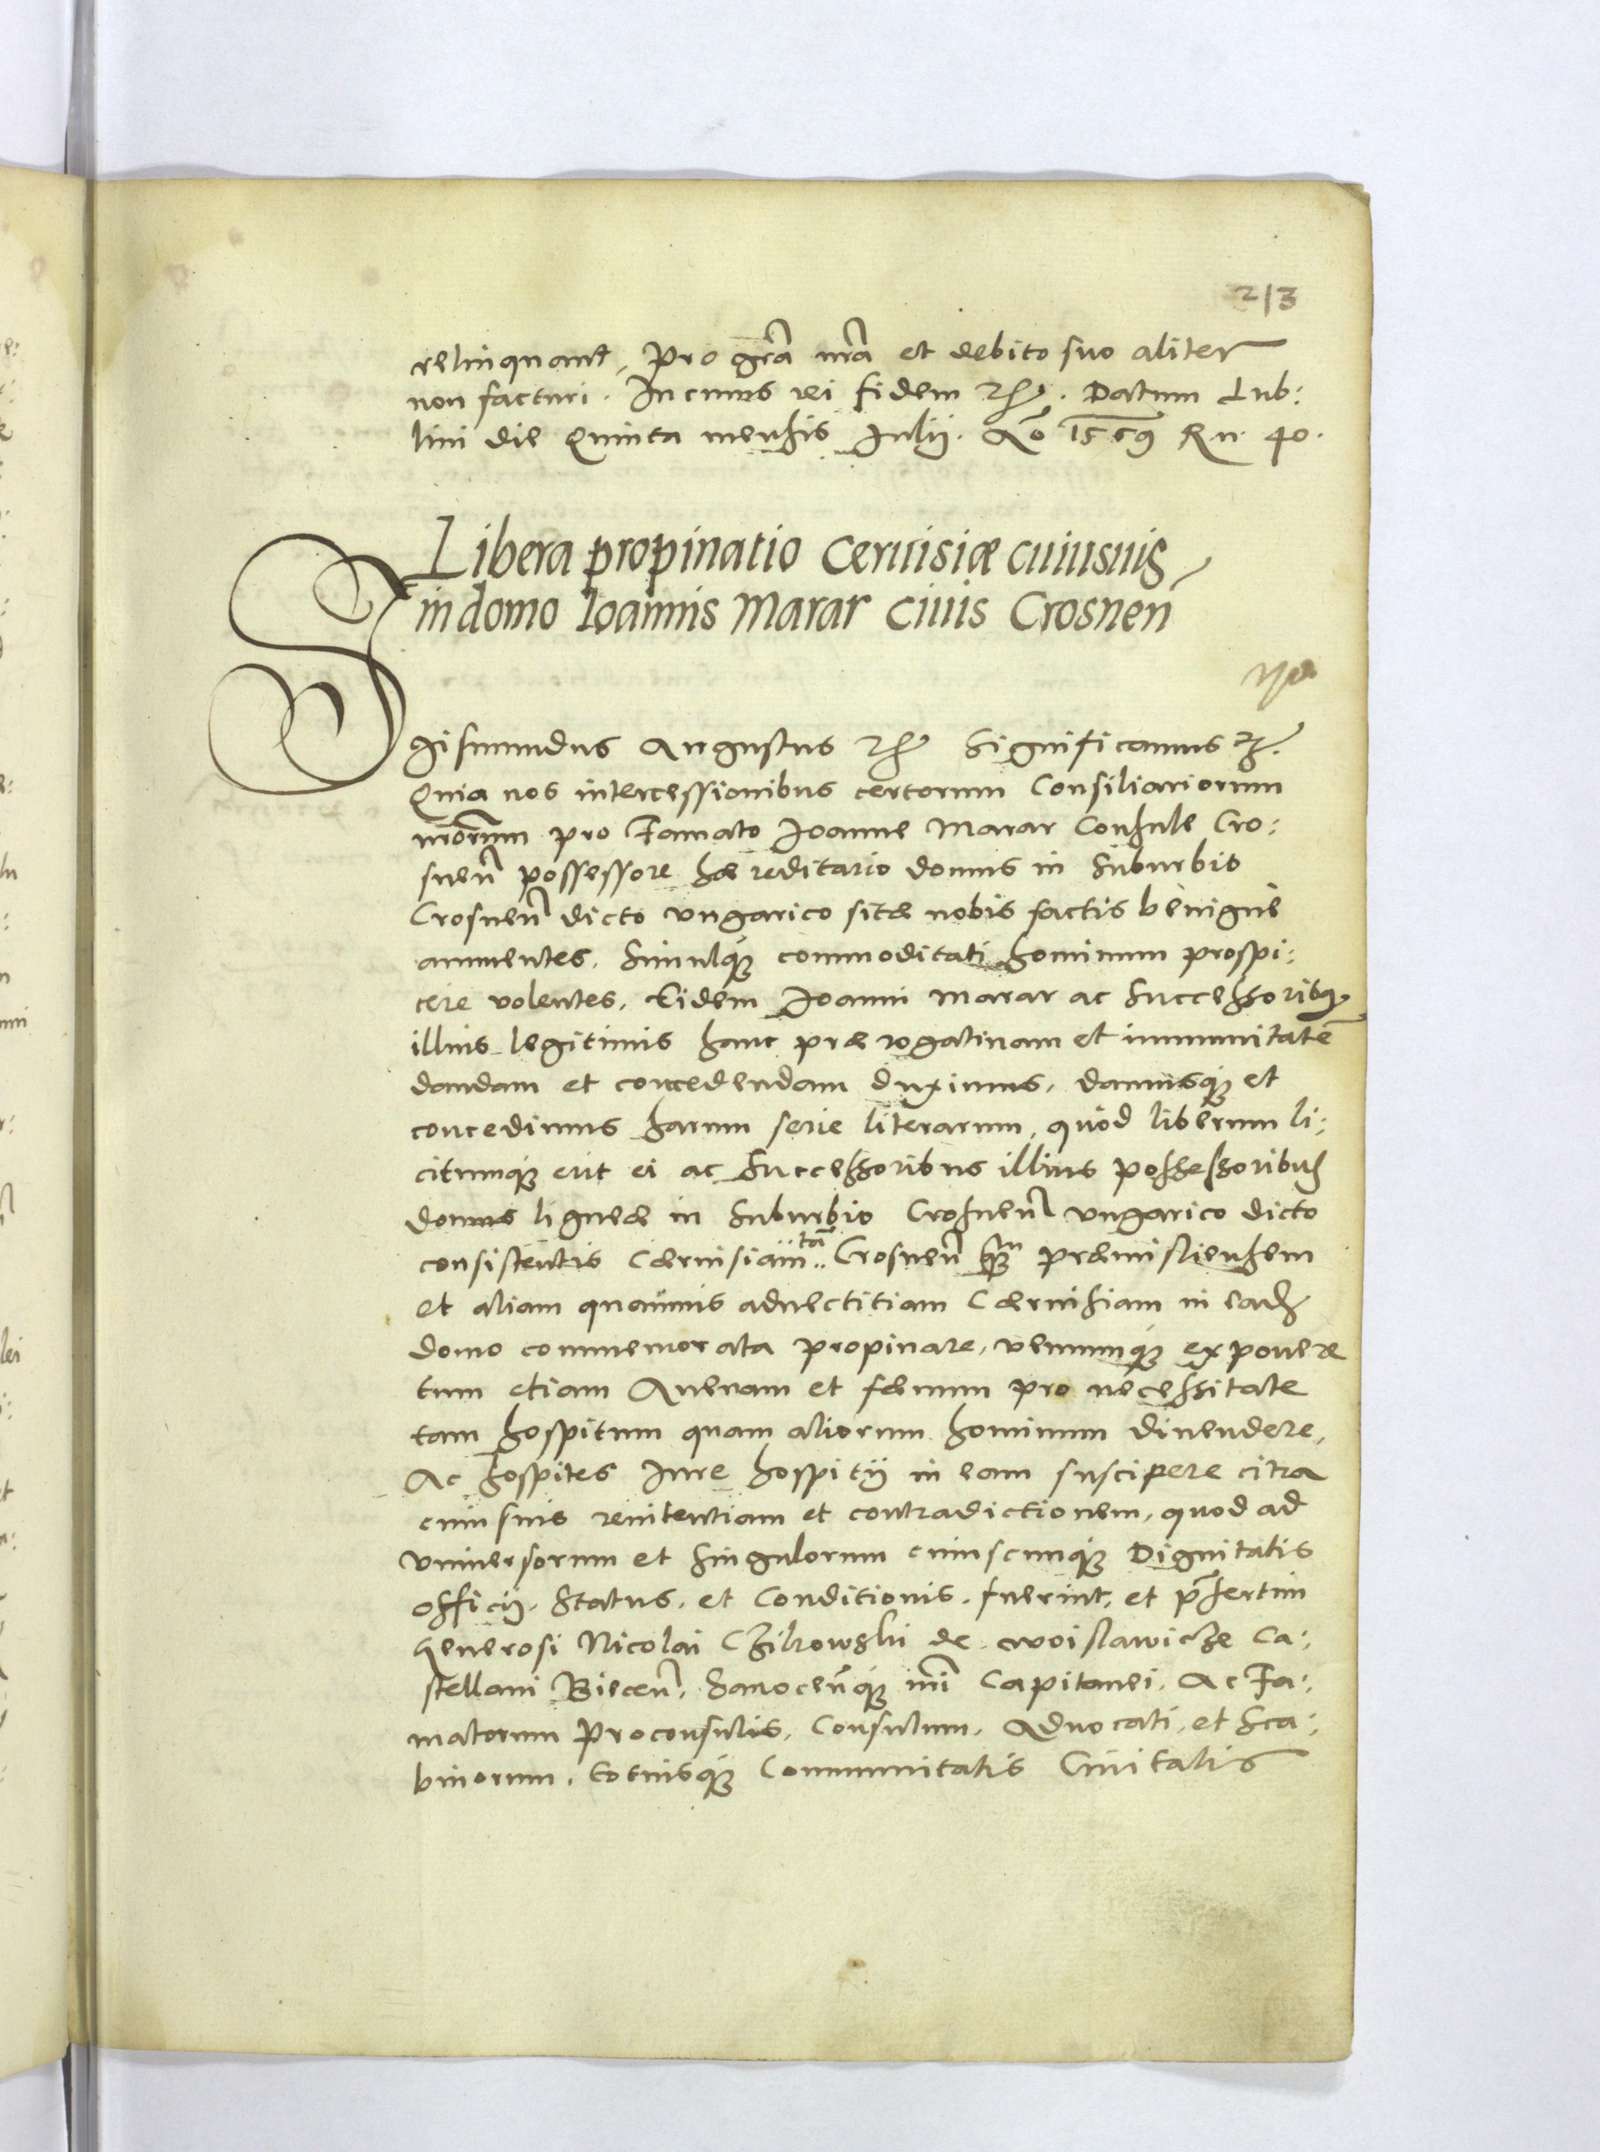 213
relinquant, pro gra nra et debito suo aliter
non facturi. In cuius rei fidem etc. Datum Lub:
lini die Quinta mensis Julij. Ao Rn. 40.
Libera propinatio Ceruisiæ cuiusuis
in domo Ioannis Marar Ciuis Crosnen
Sigismundus Augustus etc Significamus etc.
Quia nos intercessionibus certorum Consiliariorum
nrorum pro Famato Joanne Marar Consule Cro:
snen possessore hæreditario domus in Suburbio
Crosnen dicto vngarico sitæ nobis factis benigne
annuentes. Simulque commoditati hominum prospi:
cere volentes. Eidem Joanni Marar ac Successoribus
illius legitimis hanc prærogatiuam et immunitatē
dandam et concedendam duximus, damusque et
concedimus harum serie literarum, quòd liberum li:
citumque erit ei ac Successoribus illius possessoribus
domus ligneæ in Suburbio Crosnen vngarico dicto
consistentis Cæruisiam tā Crosnen quam Præmisliensem
et aliam quamuis aduectitiam Cæruisiam in ead
domo commemorata propinare, venumque exponere
tum etiam Auenam et fænum pro necessitate
tam hospitum quam aliorum hominum diuendere,
Ac hospites Jure hospitij in eam suscipere citra
cuiusuis renitentiam et contradictionem, quod ad
vniuersorum et singulorum cuiuscunque Dignitatis
officij. Status. et Conditionis. fuerint, et prsertim
Generosi Nicolai Czikowski de woislawicze Ca:
stellani Biecen. Sanocenque nri Capitanei. Ac Fa:
matorum Proconsulis. Consulum. Aduocati. et Sca:
binorum. totiusque Communitatis Ciuitatis